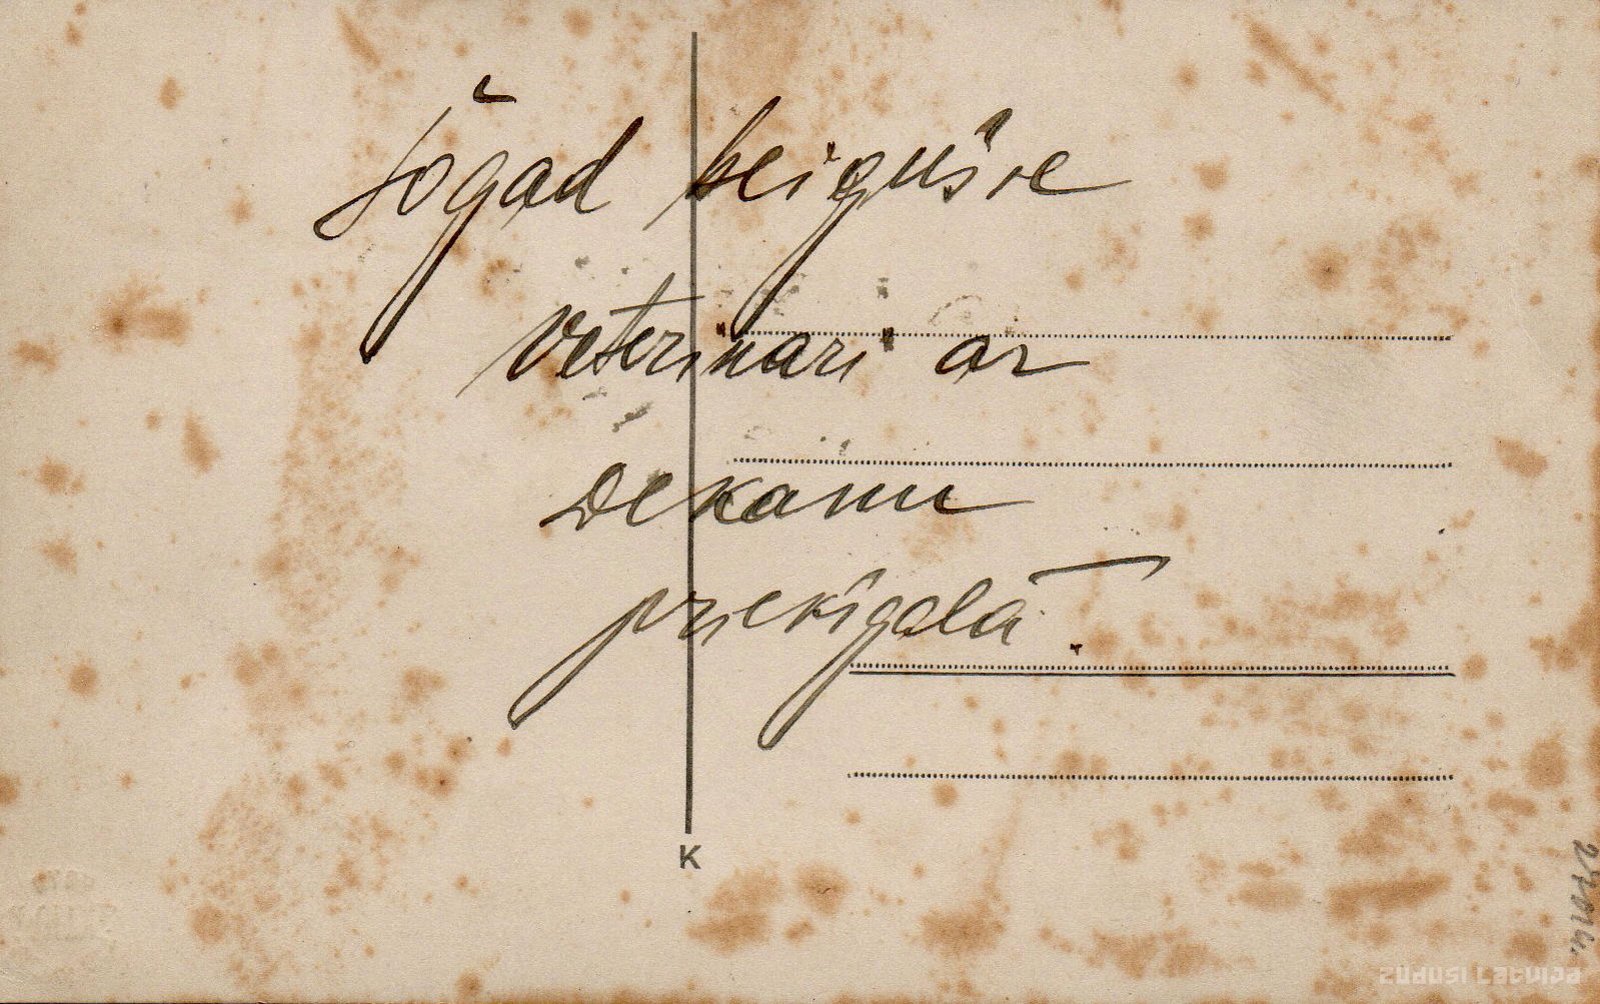 šogad beigušie
veterinari ar
Dekanu
priekšgalā.
K
zudusi Latvija